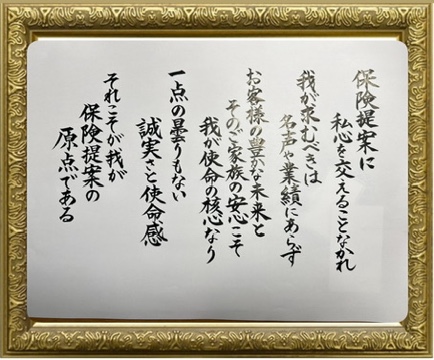 保険提案に
私心を交えることなかれ
我が求むべきは
名声や業績にあらず
お客様の豊かな未来と
そのご家族の安心こそ
我が使命の核心なり
一点の曇りもない
誠実さと使命感
それこそが我が
保険提案の
原点である